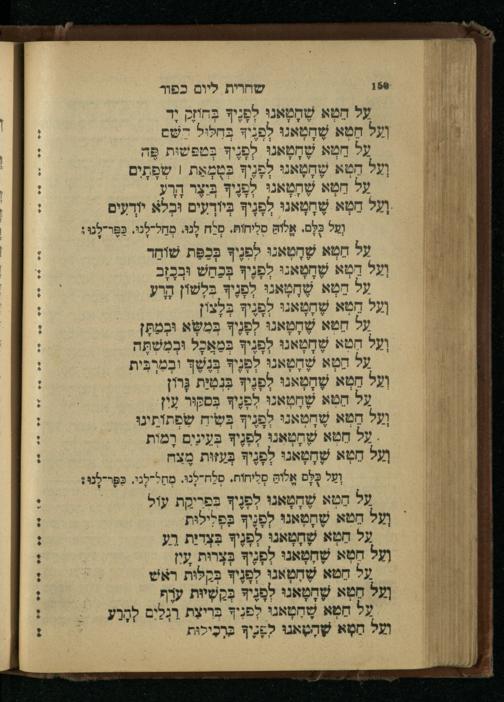 150 שחרית ליום כפור
עַל חֵטְא שֶׁחָטָאנוּ לְפָנֶיךָ בְּחוֹזֶק יָד
וְעַל חֵטְא שֶׁחָטָאנוּ לְפָנֶיךָ בְּחִלּוּל הַשֵּׁם
עַל חֵטְא שֶׁחָטָאנוּ לְפָנֶיךָ בְּטִפְשׁוּת פֶּה
וְעַל חֵטְא שֶׁחָטָאנוּ לְפָנֶיךָ בְּטֻמְאַת | שְׂפָתָיִם
עַל חֵטְא שֶׁחָטָאנוּ לְפָנֶיךָ בְּיֵצֶר הָרָע
וְעַל חֵטְא שֶׁחָטָאנוּ לְפָנֶיךָ בְּיוֹדְעִים וּבְלֹא יוֹדְעִים
וְעַל כֻּלָּם. אֱלוֹהַּ סְלִיחוֹת. סְלַח לָנוּ. מְחַל־לָנוּ. כַּפֶּר־לָנוּ:
עַל חֵטְא שֶׁחָטָאנוּ לְפָנֶיךָ בְּכַפַּת שׁוֹחַד
וְעַל חֵטְא שֶׁחָטָאנוּ לְפָנֶיךָ בְּכַחַשׁ וּבְכָזָב
עַל חֵטְא שֶׁחָטָאנוּ לְפָנֶיךָ בְּלָשׁוֹן הָרָע
וְעַל חֵטְא שֶׁחָטָאנוּ לְפָנֶיךָ בְּלָצוֹן
עַל חֵטְא שֶׁחָטָאנוּ לְפָנֶיךָ בְּמַשָּׂא וּבְמַתָּן
וְעַל חֵטְא שֶׁחָטָאנוּ לְפָנֶיךָ בְּמַאֲכָל וּבְמִשְׁתֶּה
עַל חֵטְא שֶׁחָטָאנוּ לְפָנֶיךָ בְּנֶשֶׁךְ וּבְמַרְבִּית
וְעַל חֵטְא שֶׁחָטָאנוּ לְפָנֶיךָ בִּנְטִיַּת גָּרוֹן
עַל חֵטְא שֶׁחָטָאנוּ לְפָנֶיךָ בְּסִקּוּר עַיִן
וְעַל חֵטְא שֶׁחָטָאנוּ לְפָנֶיךָ בְּשִׂיחַ שִׂפְתוֹתֵינוּ
עַל חֵטְא שֶׁחָטָאנוּ לְפָנֶיךָ בְּעֵינַיִם רָמוֹת
וְעַל חֵטְא שֶׁחָטָאנוּ לְפָנֶיךָ בְּעַזּוּת מֶצַח
וְעַל כֻּלָּם אֱלוֹהַּ סְלִיחוֹת. סְלַח־לָנוּ. מְחַל־לָנוּ. כַּפֶּר־לָנוּ:
עַל חֵטְא שֶׁחָטָאנוּ לְפָנֶיךָ בִּפְרִיקַת עוֹל
וְעַל חֵטְא שֶׁחָטָאנוּ לְפָנֶיךָ בִּפְלִילוּת
עַל חֵטְא שֶׁחָטָאנוּ לְפָנֶיךָ בִּצְדִיַּת רֵעַ
וְעַל חֵטְא שֶׁחָטָאנוּ לְפָנֶיךָ בְּצָרוּת עָיִן
עַל חֵטְא שֶׁחָטָאנוּ לְפָנֶיךָ בְּקַלּוּת רֹאשׁ
וְעַל חֵטְא שֶׁחָטָאנוּ לְפָנֶיךָ בְּקַשְׁיוּת עֹרֶף
עַל חֵטְא שֶׁחָטָאנוּ לְפָנֶיךָ בְּרִיצַת רַגְלַיִם לְהָרַע
וְעַל חֵטְא שֶׁחָטָאנוּ לְפָנֶיךָ בִּרְכִילוּת